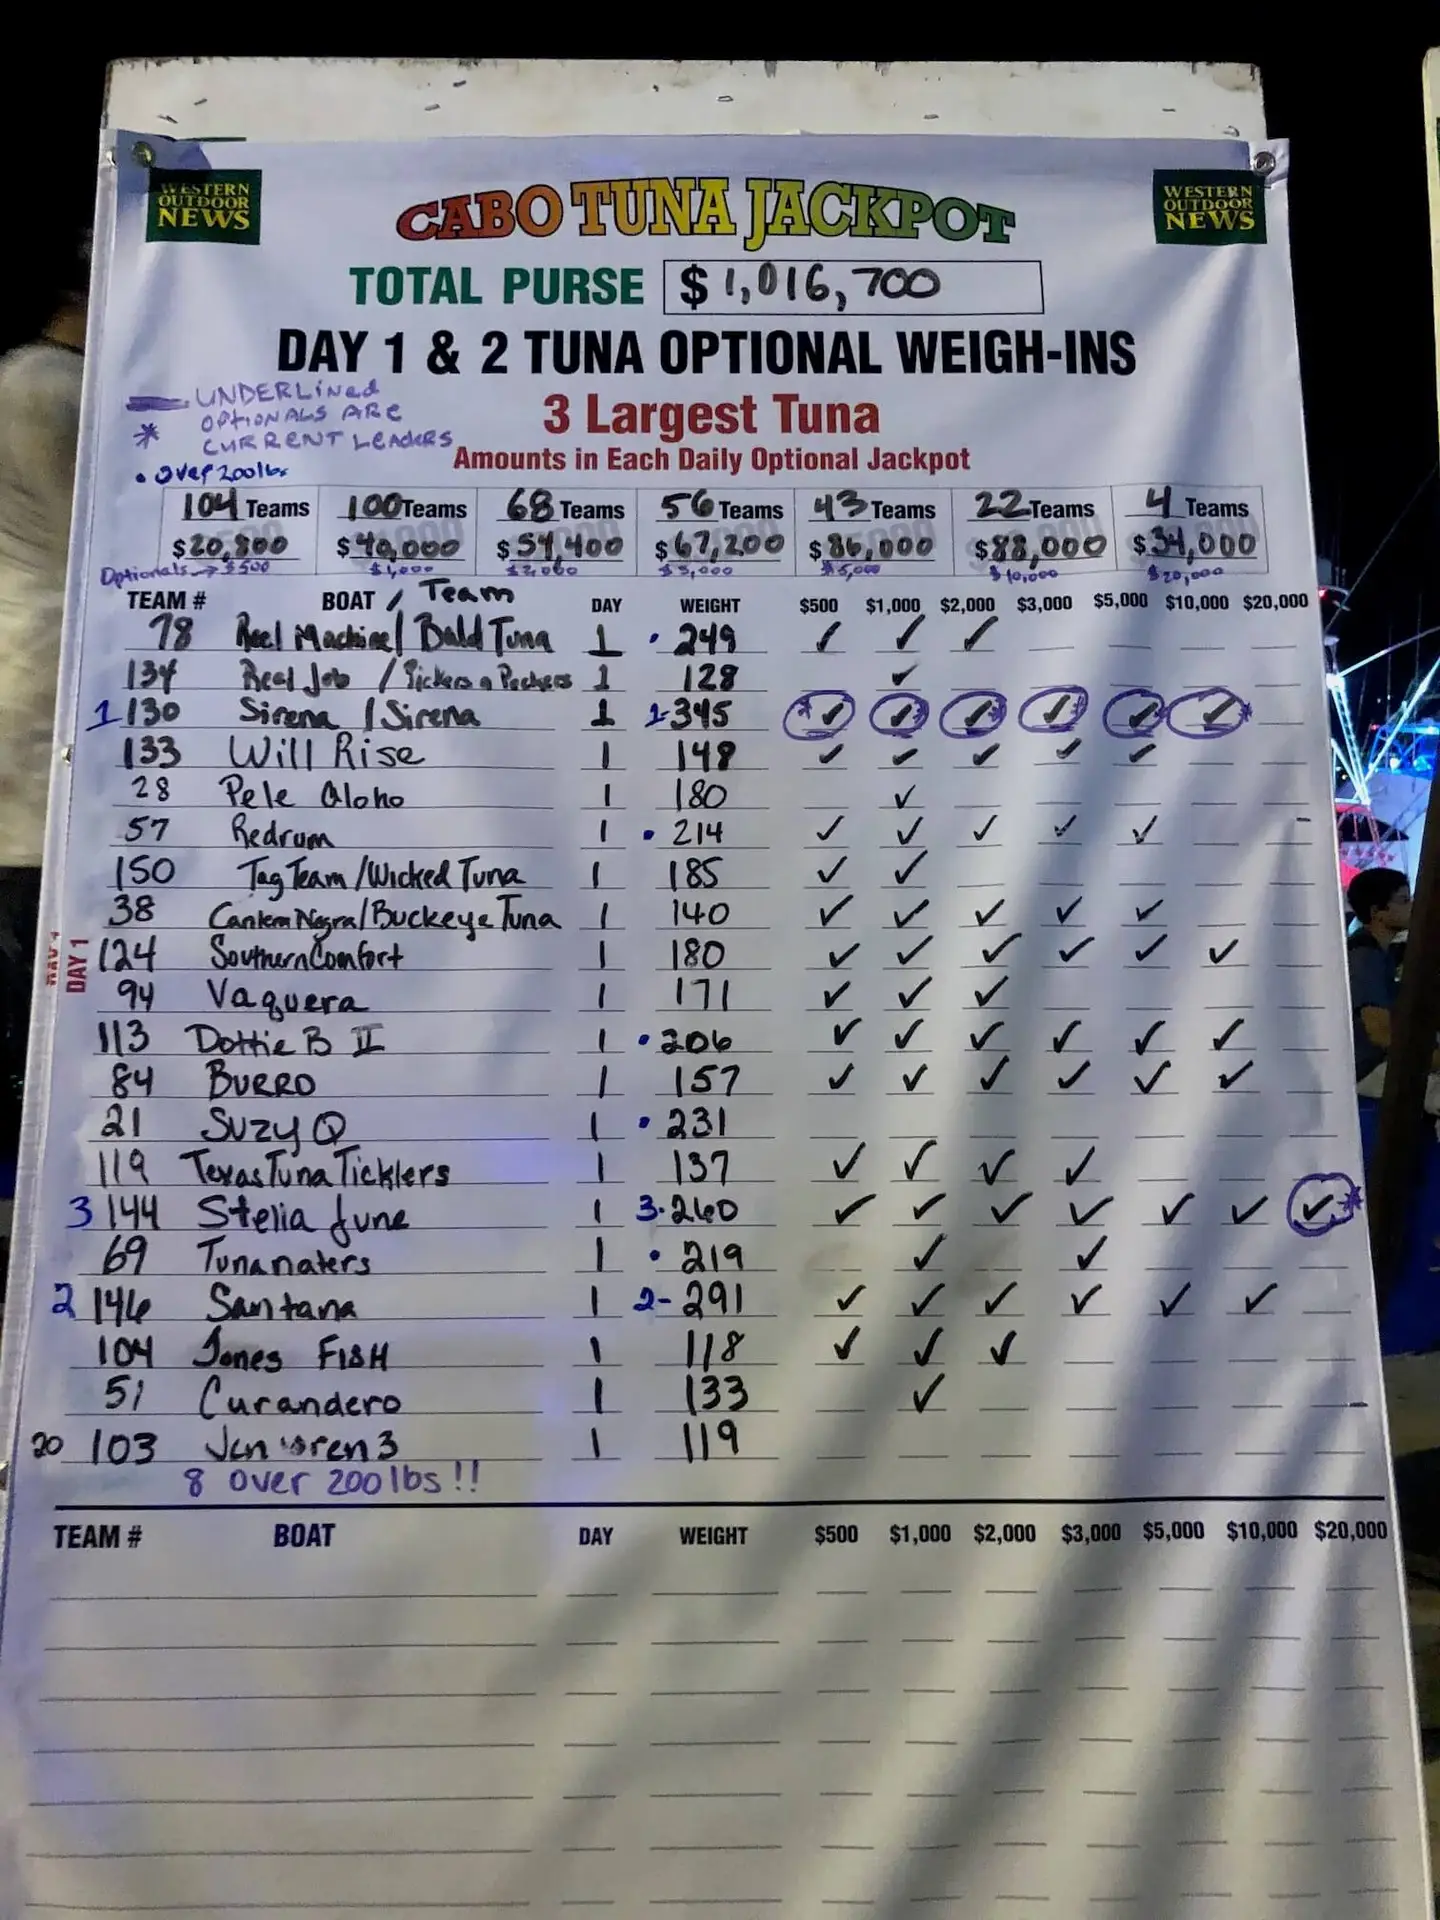 WESTERN OUTDOOR NEWS
CABO TUNA JACKPOT
WESTERN OUTDOOR NEWS
TOTAL PURSE $1,016,700
DAY 1 & 2 TUNA OPTIONAL WEIGH-INS
UNDERLined
OPtiONALS ARE
* CURRENT LeAdeRS
• Over 200lbs
3 Largest Tuna
Amounts in Each Daily Optional Jackpot
104 Teams 100 Teams 68 Teams 56 Teams 43 Teams 22 Teams 4 Teams
$20,800 $40,000 $54,400 $67,200 $86,000 $88,000 $34,000
Optionals → $500 $1,000 $2,000 $3,000 $5,000 $10,000 $20,000
TEAM # BOAT / Team DAY WEIGHT $500 $1,000 $2,000 $3,000 $5,000 $10,000 $20,000
78 Reel Machine / Bald Tuna 1 • 249 ✓ ✓ ✓
134 Real Job / Pickers n Peckers 1 128 ✓
1 130 Sirena / Sirena 1 1- 345 *✓ ✓* ✓* ✓* ✓* ✓*
133 Will Rise 1 148 ✓ ✓ ✓ ✓ ✓
28 Pele Aloho 1 180 ✓
57 Redrum 1 • 214 ✓ ✓ ✓ ✓ ✓
150 Tag Team / Wicked Tuna 1 185 ✓ ✓
38 Negra / Buckeye Tuna 1 140 ✓ ✓ ✓ ✓ ✓
DAY 1
124 Southern Comfort 1 180 ✓ ✓ ✓ ✓ ✓ ✓
94 Vaquera 1 171 ✓ ✓ ✓
113 Dottie B II 1 • 206 ✓ ✓ ✓ ✓ ✓ ✓
84 BURRO 1 157 ✓ ✓ ✓ ✓ ✓ ✓
21 SUZY Q 1 • 231
119 Texas Tuna Ticklers 1 137 ✓ ✓ ✓ ✓
3 144 Stelia June 1 3• 260 ✓ ✓ ✓ ✓ ✓ ✓ ✓*
69 Tunanaters 1 • 219 ✓ ✓
2 146 Santana 1 2- 291 ✓ ✓ ✓ ✓ ✓ ✓
104 Jones FISH 1 118 ✓ ✓ ✓
51 Curandero 1 133 ✓
20 103 1 119
8 over 200lbs!!
TEAM # BOAT DAY WEIGHT $500 $1,000 $2,000 $3,000 $5,000 $10,000 $20,000